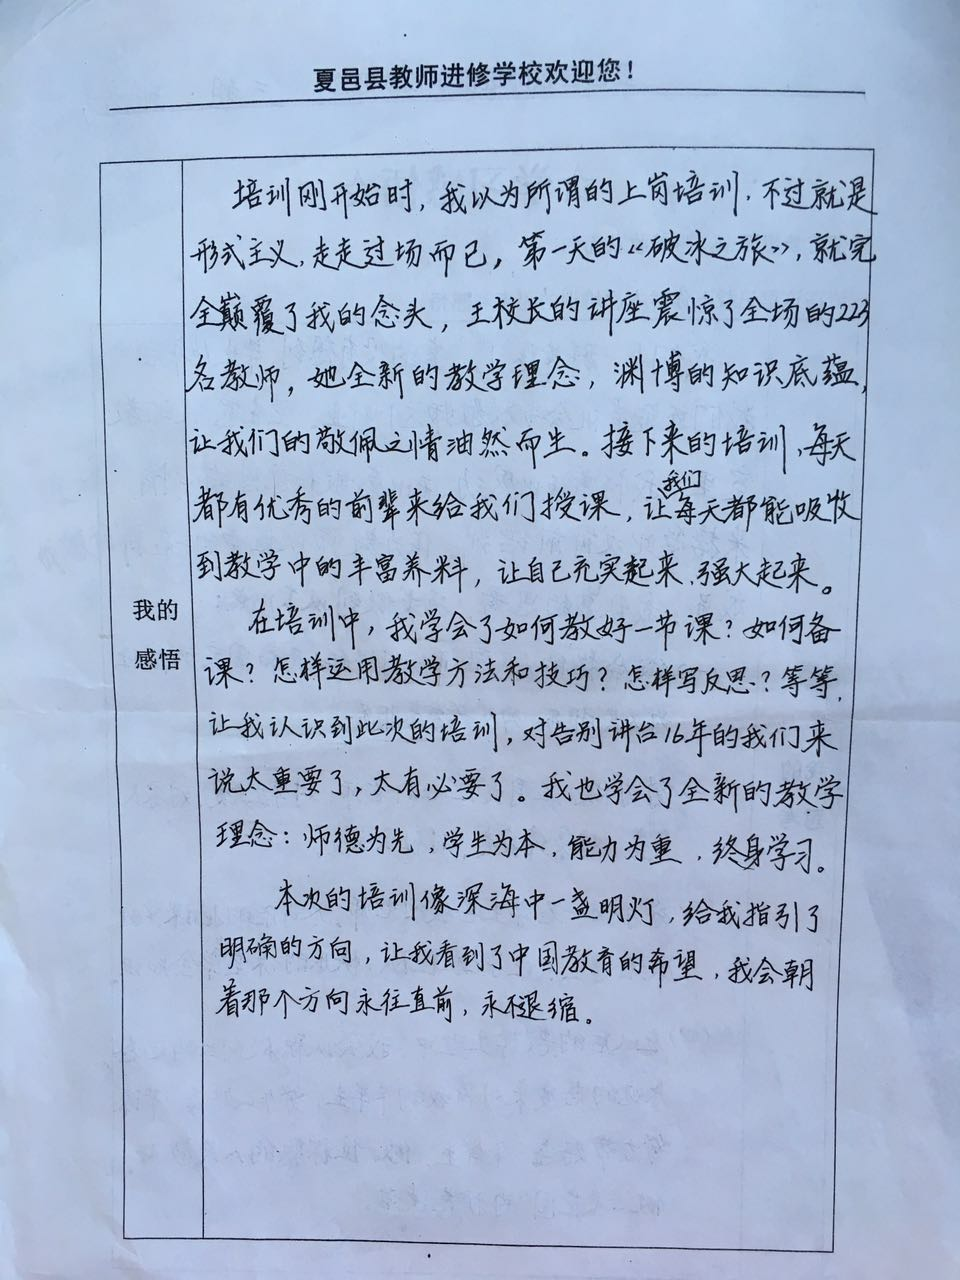 夏邑县教师进修学校欢迎您！
培训刚开始时，我以为所谓的上岗培训，不过就是
形式主义，走走过场而已，第一天的《破冰之旅》，就完
全巅覆了我的念头，王校长的讲座震惊了全场的223
名教师，她全新的教学理念，渊博的知识底蕴，
让我们的敬佩之情油然而生。接下来的培训，每天
都有优秀的前辈来给我们授课，让我们每天都能吸收
到教学中的丰富养料，让自己充实起来、强大起来。
我的
感悟
在培训中，我学会了如何教好一节课？如何备
课？怎样运用教学方法和技巧？怎样写反思？等等，
让我认识到此次的培训，对告别讲台16年的我们来
说太重要了，太有必要了。我也学会了全新的教学
理念：师德为先，学生为本，能力为重，终身学习。
本次的培训像深海中一盏明灯，给我指引了
明确的方向，让我看到了中国教育的希望，我会朝
着那个方向永往直前，永不退缩。